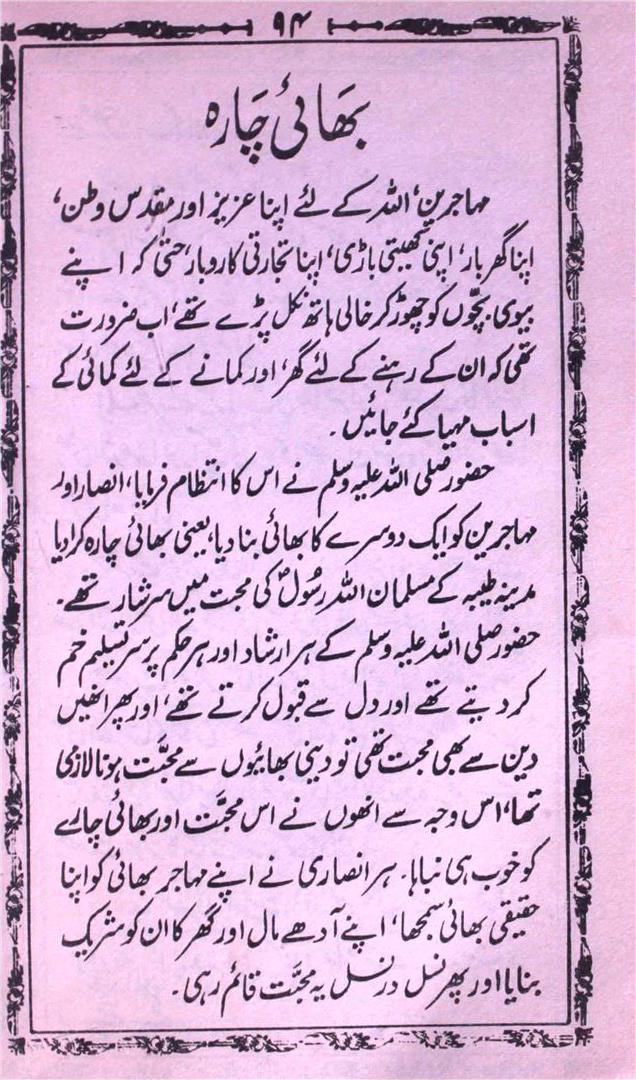 ۹۴
بھائی چارہ
مہاجرین، اللہ کے لئے اپنا عزیز اور مقدس وطن،
اپنا گھر بار، اپنی کھیتی باڑی، اپنا تجارتی کاروبار، حتیٰ کہ اپنے
بیوی بچّوں کو چھوڑ کر خالی ہاتھ نکل پڑے تھے، اب ضرورت
تھی کہ ان کے رہنے کے لئے گھر، اور کمانے کے لئے کمائی کے
اسباب مہیا کئے جائیں۔
حضور صلی اللہ علیہ وسلم نے اس کا انتظام فرمایا، انصار اور
مہاجرین کو ایک دوسرے کا بھائی بنا دیا، یعنی بھائی چارہ کرا دیا
مدینہ طیبہ کے مسلمان اللہ رسُولؐ کی محبت میں سرشار تھے۔
حضور صلی اللہ علیہ وسلم کے ہر ارشاد اور ہر حکم پر سر تسلیم خم
کر دیتے تھے اور دل سے قبول کرتے تھے، اور پھر انھیں
دین سے بھی محبت تھی تو دینی بھائیوں سے محبّت ہونا لازمی
تھا، اس وجہ سے انھوں نے اس محبَّت اور بھائی چارے
کو خوب ہی نباہا۔ ہر انصاری نے اپنے مہاجر بھائی کو اپنا
حقیقی بھائی سمجھا، اپنے آدھے مال اور گھر کا ان کو شریک
بنایا اور پھر نسل در نسل یہ محبَّت قائم رہی۔